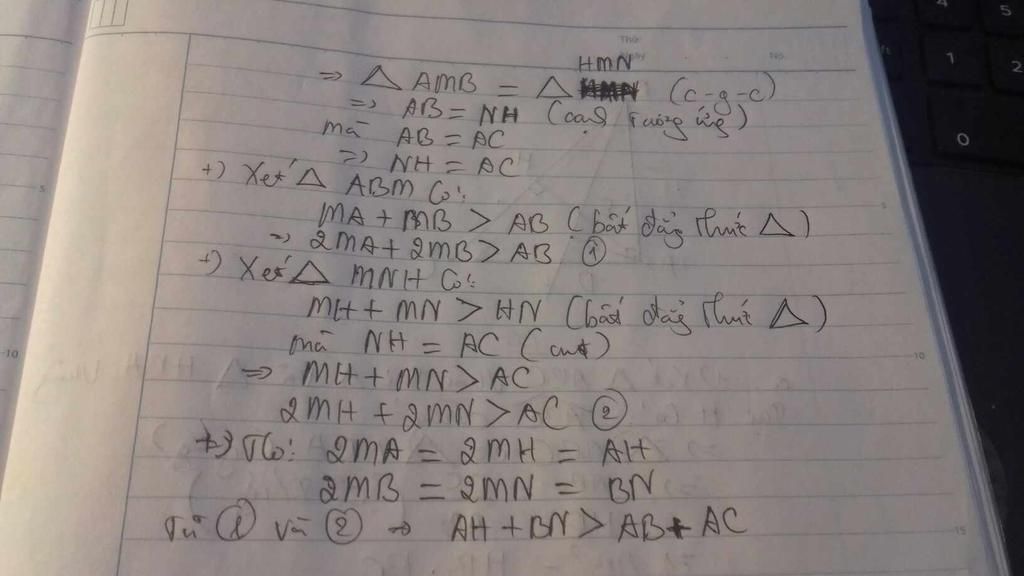 HMN
=> △ AMB = △ HMN (c-g-c)
=> AB = NH (cạnh tương ứng)
mà AB = AC
=> NH = AC
+) Xét △ ABM Có:
MA + MB > AB (bất đẳng thức △)
=> 2MA + 2MB > AB ①
+) Xét △ MNH Có:
MH + MN > HN (bất đẳng thức △)
mà NH = AC (cmt)
=> MH + MN > AC
2MH + 2MN > AC ②
+) Tcó: 2MA = 2MH = AH
2MB = 2MN = BN
Từ ① và ② => AH + BN > AB + AC